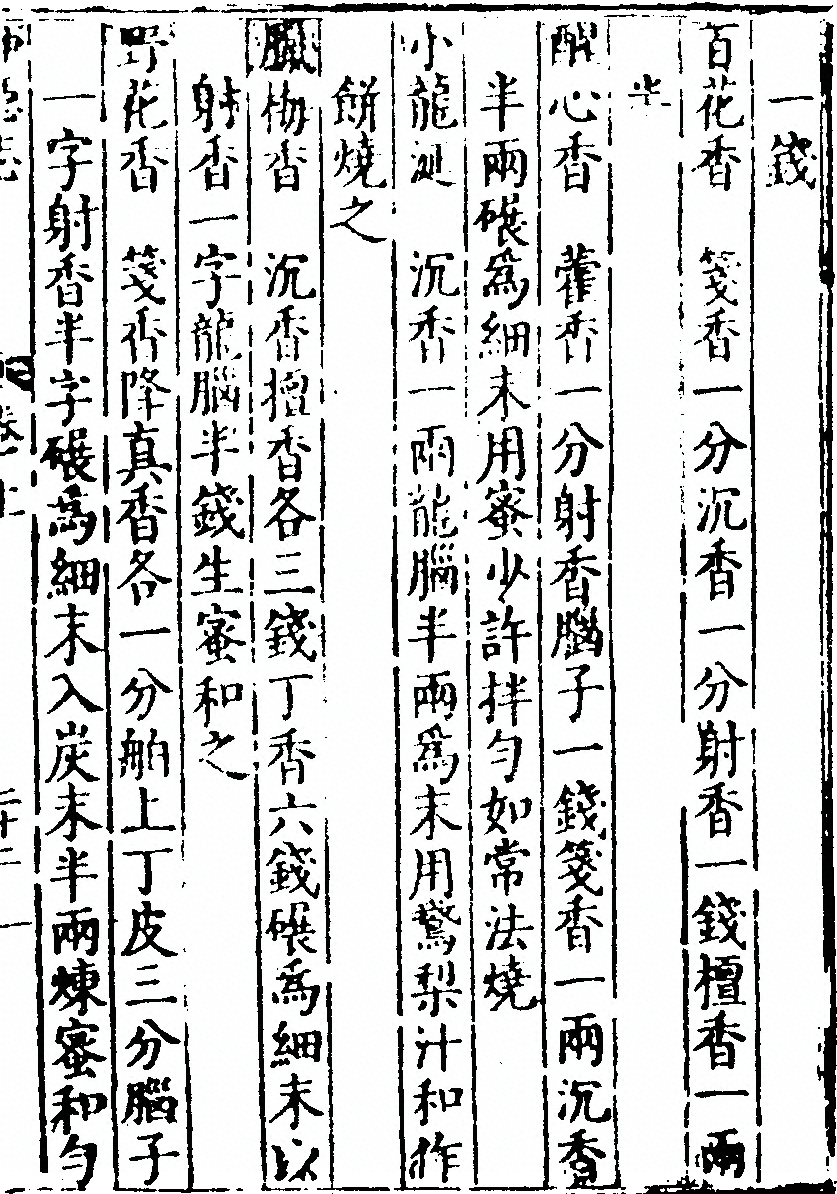 一錢
百花香　箋香一分沉香一分射香一錢檀香一兩
半
醒心香　藿香一分射香腦子一錢箋香一兩沉香
半兩碾爲細末用蜜少許拌勻如常法燒
小龍涎　沉香一兩龍腦半兩爲末用鵞梨汁和作
餅燒之
臘梅香　沉香檀香各三錢丁香六錢碾爲細末以
射香一字龍腦半錢生蜜和之
野花香　箋香降真香各一分舶上丁皮三分腦子
一字射香半字碾爲細末入炭末半兩煉蜜和勻
卷十上　二十二